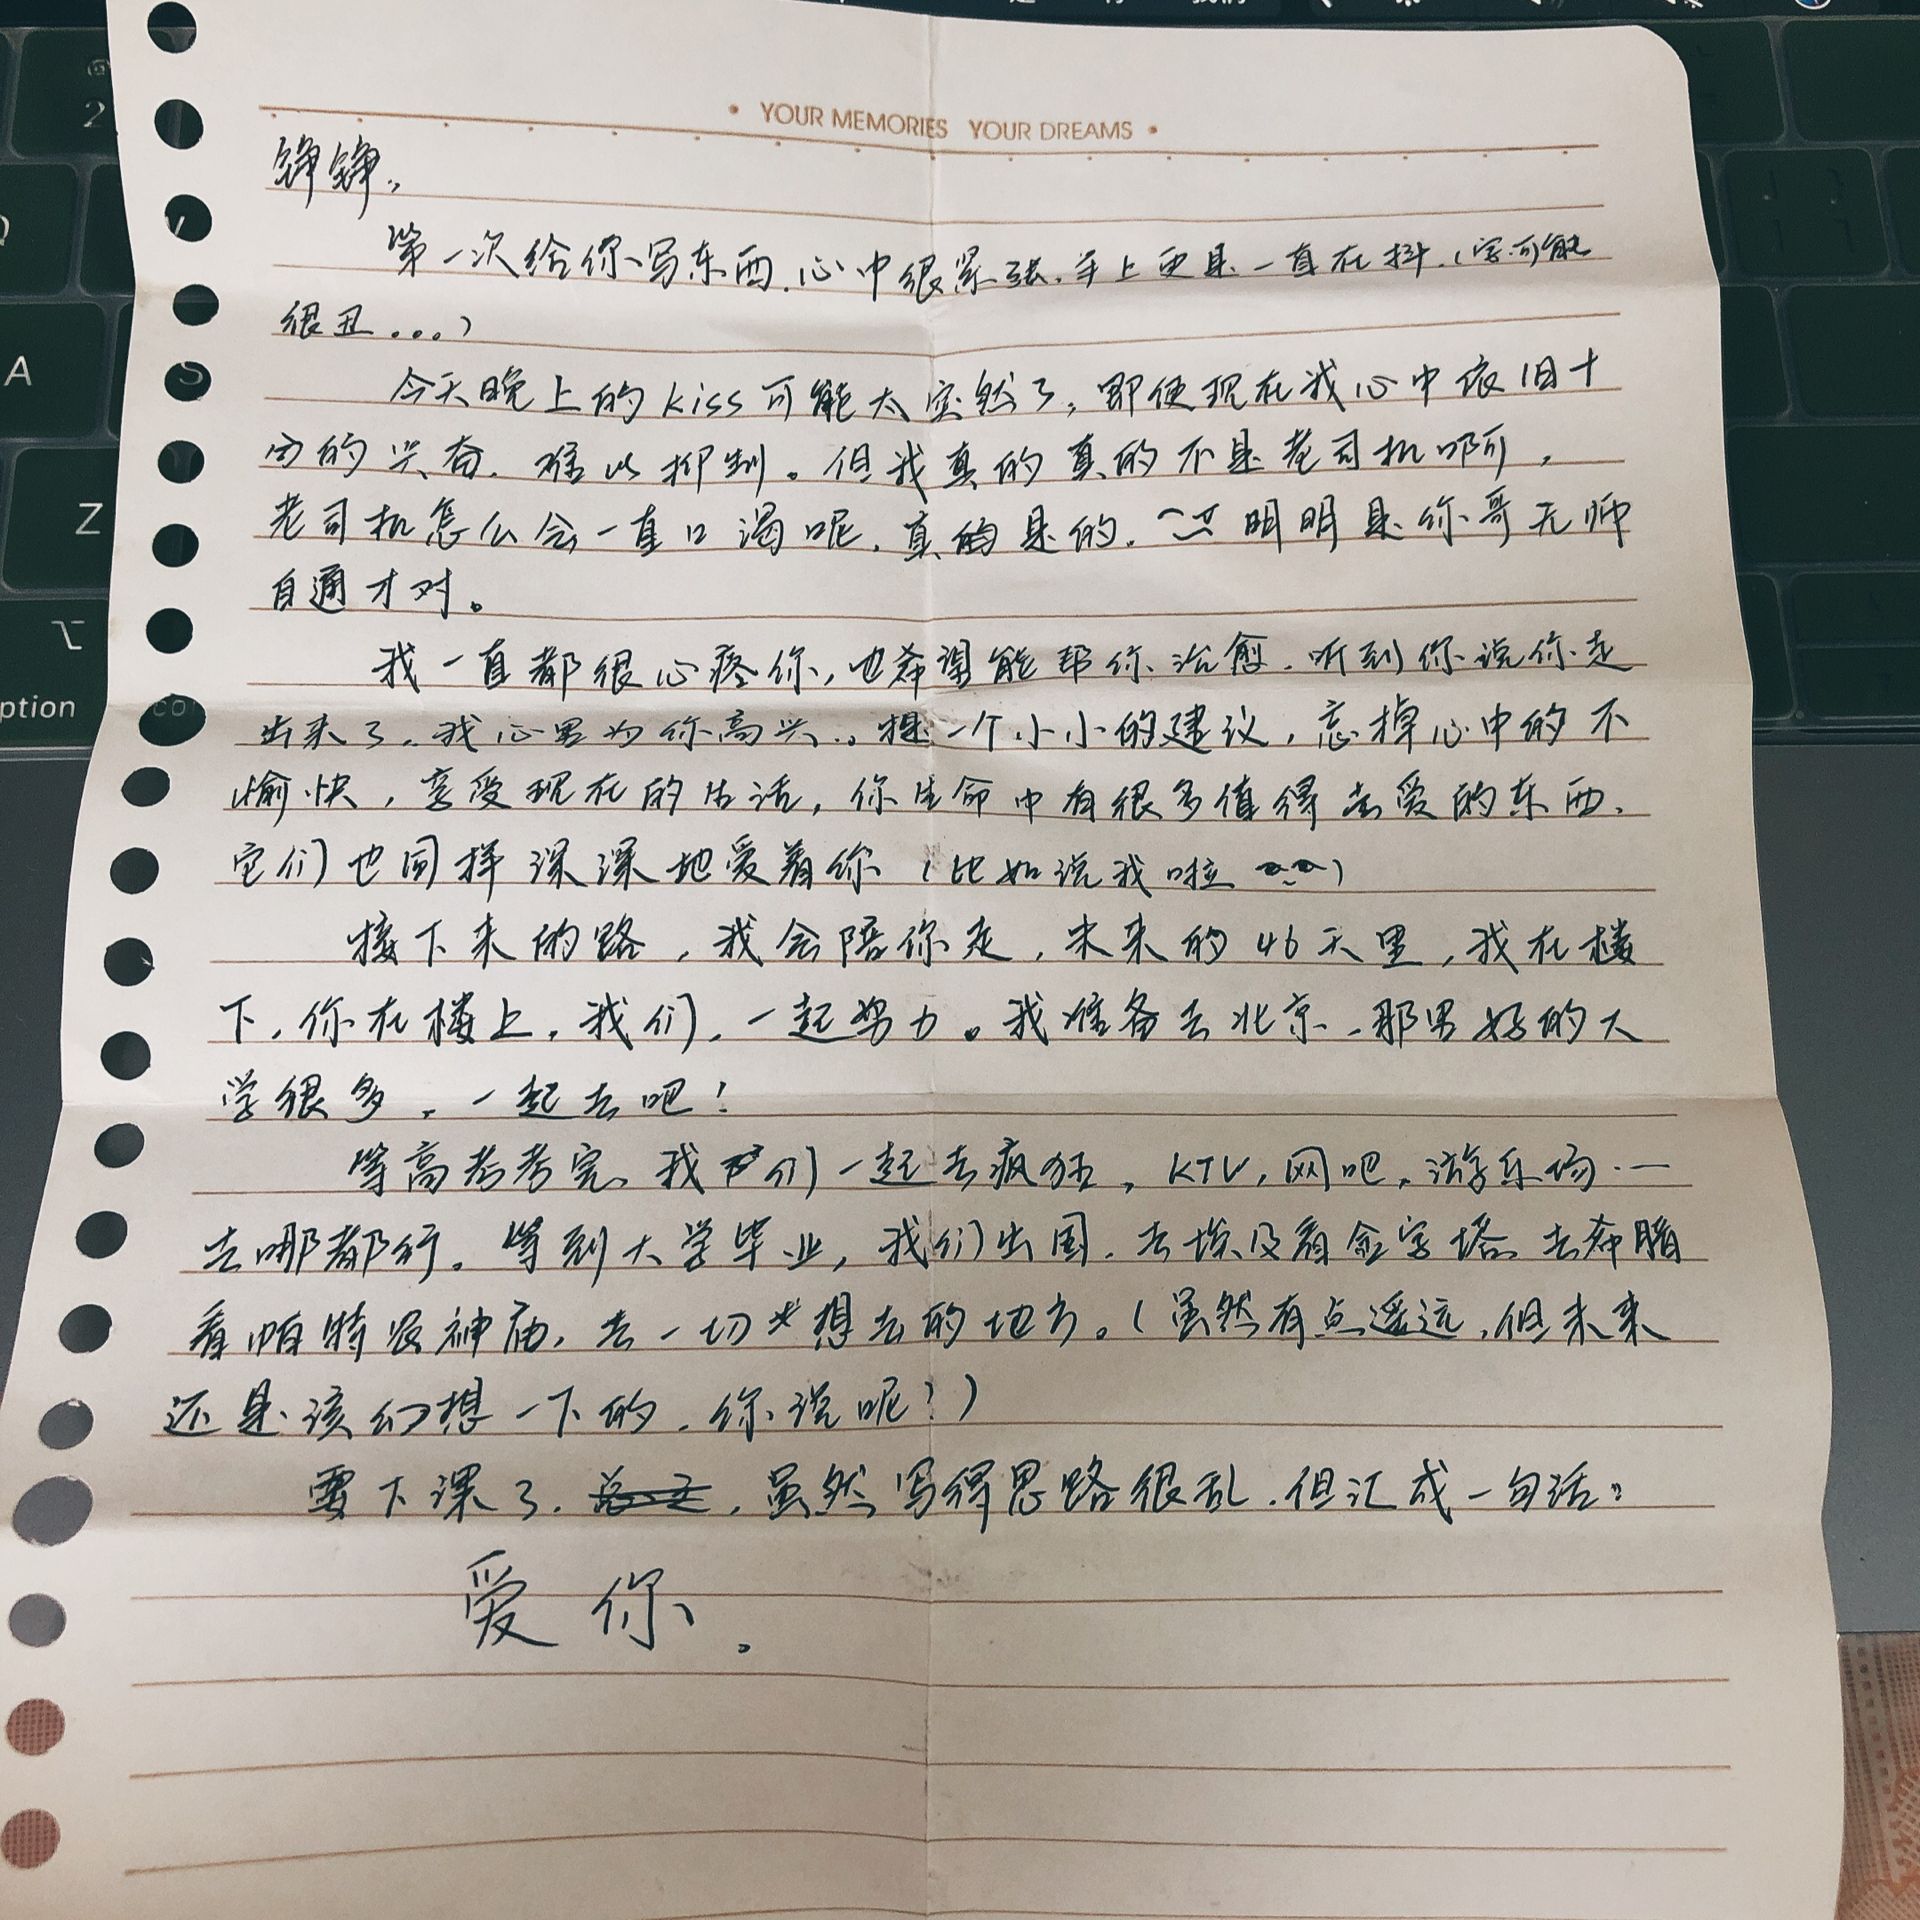 YOUR MEMORIES YOUR DREAMS
铮铮,
第一次给你写东西,心中很紧张,手上更是一直在抖.(字可能
很丑...)
今天晚上的kiss可能太突然了,即使现在我心中依旧十
分的兴奋,难以抑制。但我真的真的不是老司机啊,
老司机怎么会一直口渴呢,真的是的.明明是你哥无师
自通才对。
我一直都很心疼你,也希望能帮你治愈.听到你说你走
出来了,我心里为你高兴..提一个小小的建议,忘掉心中的不
愉快,享受现在的生活,你生命中有很多值得去爱的东西,
它们也同样深深地爱着你(比如说我啦)
接下来的路,我会陪你走,未来的46天里,我在楼
下,你在楼上,我们,一起努力。我准备去北京,那里好的大
学很多,一起去吧!
等高考考完,我们一起去疯狂,KTV,网吧,游乐场……
去哪都行。等到大学毕业,我们出国,去埃及看金字塔,去希腊
看帕特农神庙,去一切想去的地方。(虽然有点遥远,但未来
还是该幻想一下的,你说呢?)
要下课了,虽然写得思路很乱,但汇成一句话:
爱你.
@
2
A
S
Z
⌥
ption